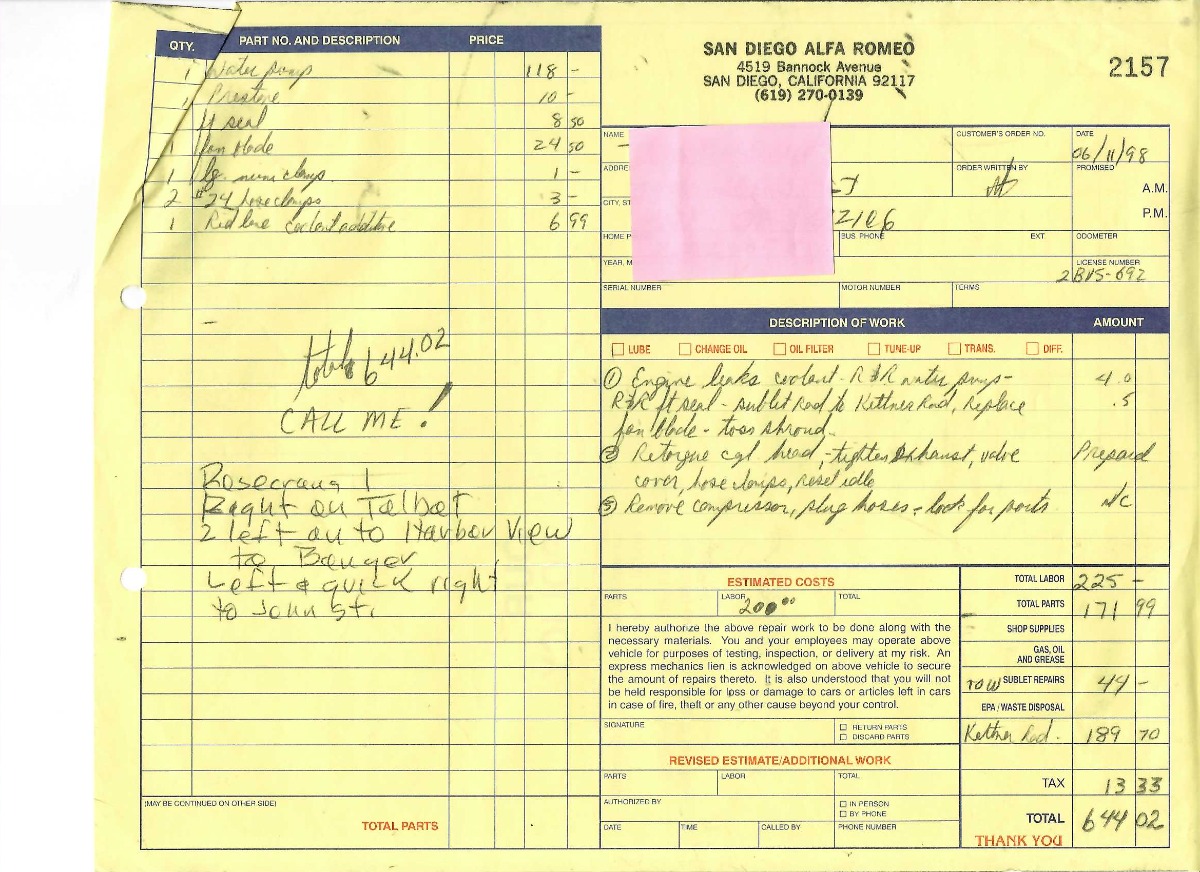 QTY. PART NO. AND DESCRIPTION PRICE
1 Water pump 118 -
1 Prestone 10 -
1 ft seal 8 50
1 fan blade 24 50
1 lg. clamp 1 -
2 #24 hose clamps 3 -
1 Red line coolant additive 6 99
total 644.02
CALL ME!
Rosecrans 1
Right on Talbot
2 left on to Harbor View
to Bangor
Left & quick right
to John St.
(MAY BE CONTINUED ON OTHER SIDE)
TOTAL PARTS
SAN DIEGO ALFA ROMEO
4519 Bannock Avenue
SAN DIEGO, CALIFORNIA 92117
(619) 270-0139
2157
NAME CUSTOMER'S ORDER NO. DATE
06/11/98
ORDER WRITTEN BY PROMISED
A.M.
CITY, ST
P.M.
2106
HOME P BUS. PHONE EXT. ODOMETER
YEAR, M LICENSE NUMBER
2BVS-692
SERIAL NUMBER MOTOR NUMBER TERMS
DESCRIPTION OF WORK AMOUNT
LUBE CHANGE OIL OIL FILTER TUNE-UP TRANS. DIFF.
① Engine leaks coolant - R&R water pump - 4.0
R&R ft seal - sublet Rad to Kettner Rad, Replace .5
fan blade - toss shroud.
② Retorque cyl head, - tighten Exhaust, valve Prepaid
cover, hose clamps, reset idle
③ Remove compressor, plug hoses - look for parts N/C
ESTIMATED COSTS
PARTS LABOR 200.00 TOTAL
I hereby authorize the above repair work to be done along with the
necessary materials. You and your employees may operate above
vehicle for purposes of testing, inspection, or delivery at my risk. An
express mechanics lien is acknowledged on above vehicle to secure
the amount of repairs thereto. It is also understood that you will not
be held responsible for loss or damage to cars or articles left in cars
in case of fire, theft or any other cause beyond your control.
SIGNATURE RETURN PARTS
DISCARD PARTS
REVISED ESTIMATE/ADDITIONAL WORK
PARTS LABOR TOTAL
AUTHORIZED BY IN PERSON
BY PHONE
DATE TIME CALLED BY PHONE NUMBER
TOTAL LABOR 225 -
TOTAL PARTS 171 99
SHOP SUPPLIES
GAS, OIL
AND GREASE
TOW SUBLET REPAIRS 44 -
EPA / WASTE DISPOSAL
Kettner Rad. 189 70
TAX 13 33
TOTAL 644 02
THANK YOU